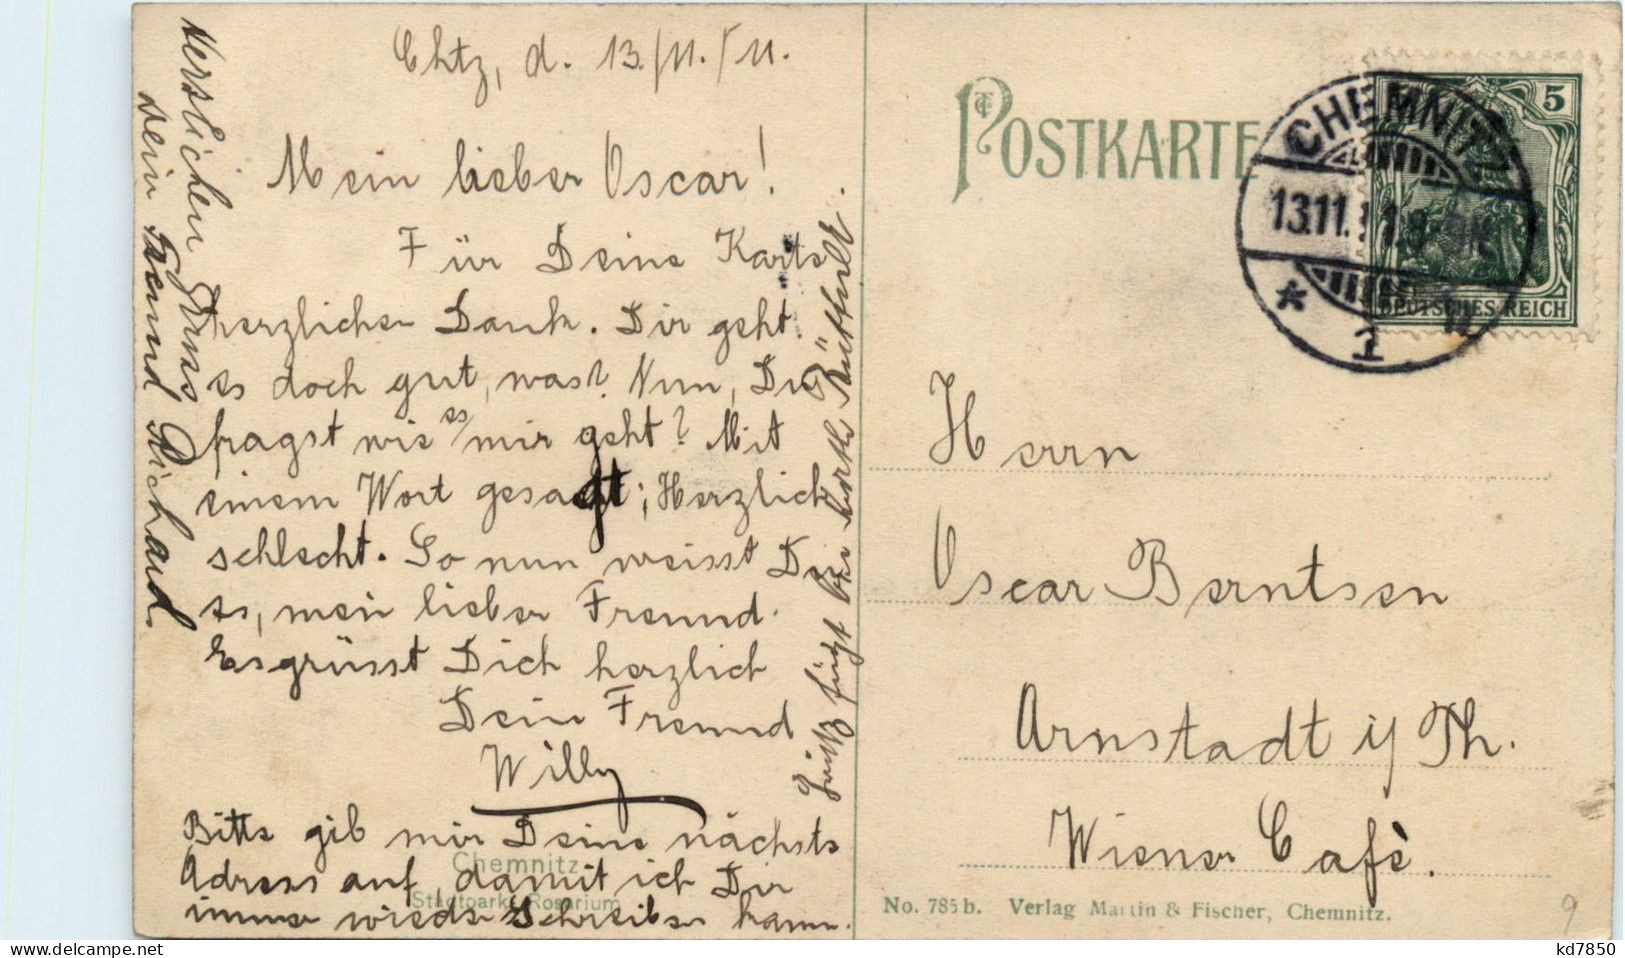 Chtz, d. 13./11./11.
Mein lieber Oscar!
Für Deine Karte
herzlichen Dank. Dir geht
es doch gut, was? Nun, Du
fragst wie es mir geht? Mit
einem Wort gesagt; Herzlich
schlecht. So nun weisst Du
es, mein lieber Freund.
Es grüsst Dich herzlich
Dein Freund
Willy
Bitte gib mir Deine nächste
Adresse auf, damit ich Dir
immer wieder schreiben kann.
Herzlichen Gruss
Dein Freund Richard
Grüße fügt bei
Chemnitz.
Stadtpark, Rosarium
POSTKARTE
CHEMNITZ
13.11.11.8-9N.
5
DEUTSCHES REICH
Herrn
Oscar Berntsen
Arnstadt i/Th.
Wiener Café.
No. 785b. Verlag Martin & Fischer, Chemnitz.
9
kd7850
www.delcampe.net